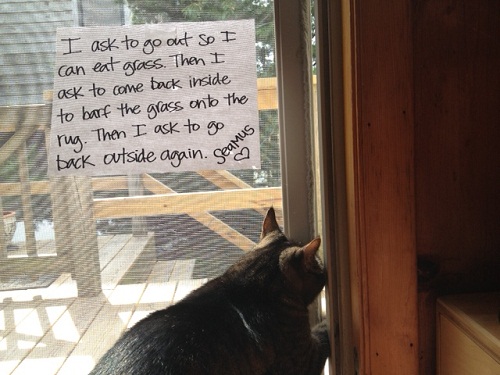 I ask to go out so I
can eat grass. Then I
ask to come back inside
to barf the grass onto the
rug. Then I ask to go
back outside again. SEAMUS ♡